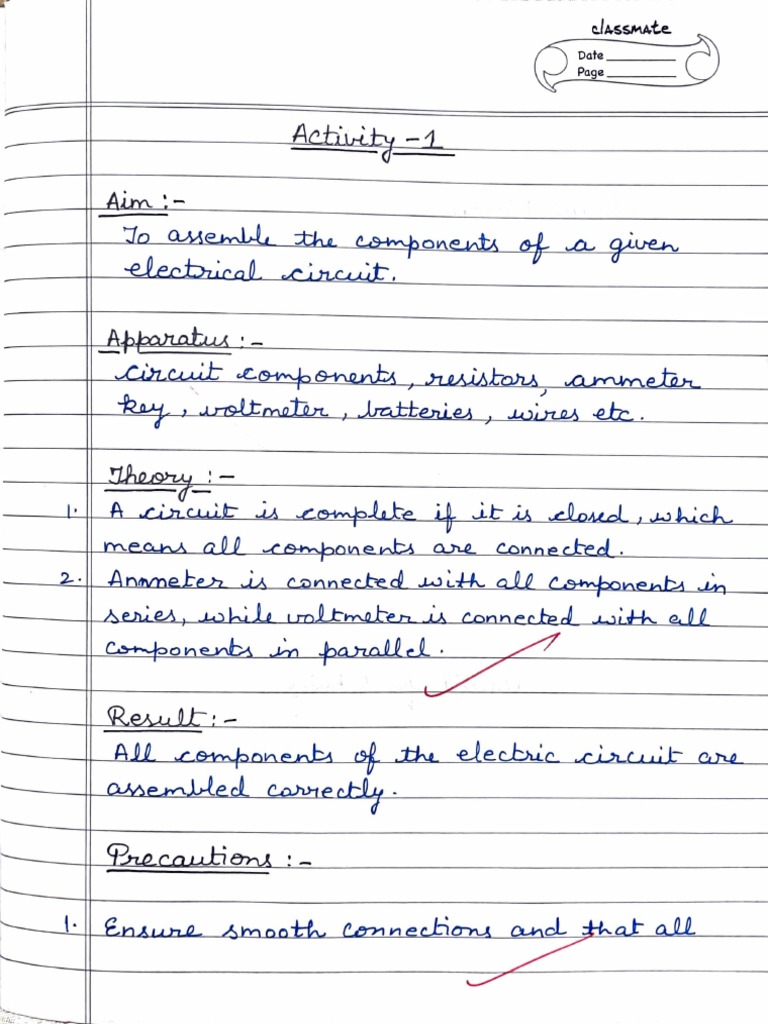 classmate
Date
Page
Activity - 1
Aim :-
To assemble the components of a given
electrical circuit.
Apparatus :-
circuit components, resistors, ammeter
key, voltmeter, batteries, wires etc.
Theory :-
1. A circuit is complete if it is closed, which
means all components are connected.
2. Ammeter is connected with all components in
series, while voltmeter is connected with all
components in parallel.
Result :-
All components of the electric circuit are
assembled correctly.
Precautions :-
1. Ensure smooth connections and that all